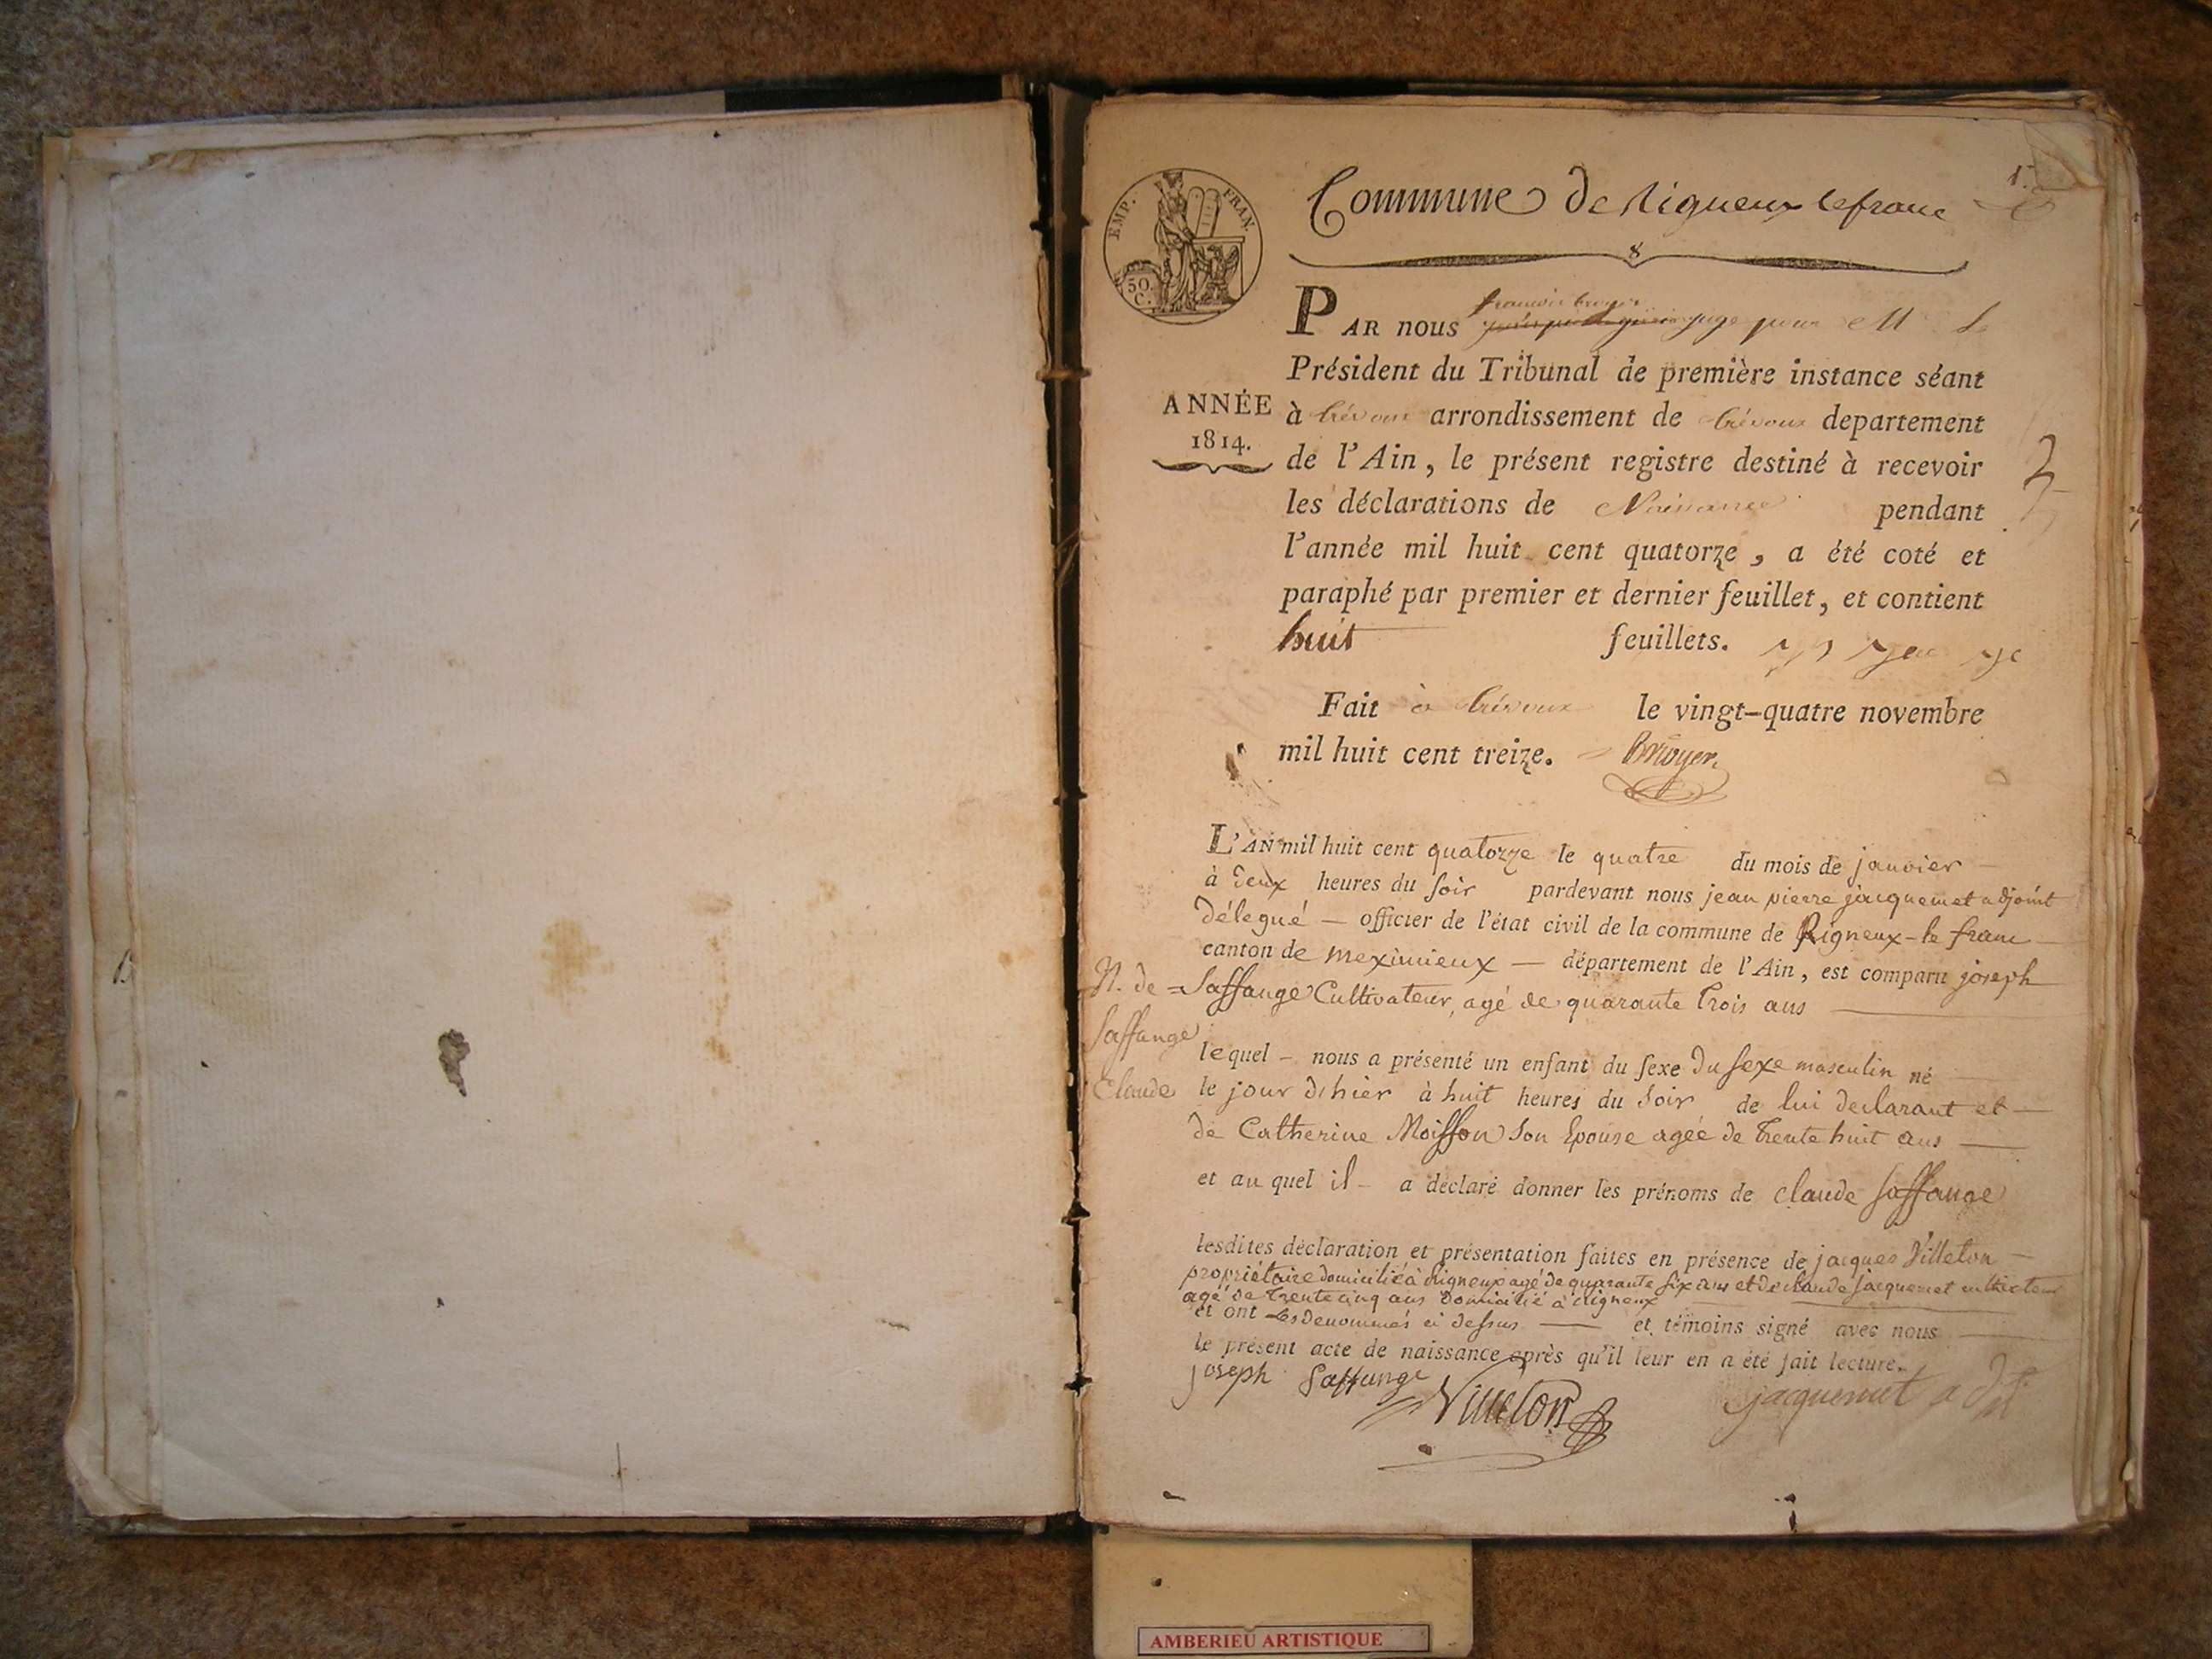 1.
EMP. FRAN.
50.
C.
Commune de Rigneux lefranc
8
françois bruyer
PAR nous juge pour Mr Le
Président du Tribunal de première instance séant
à trévoux arrondissement de trévoux departement
de l'Ain, le présent registre destiné à recevoir
les déclarations de Naissance pendant
l'année mil huit cent quatorze, a été coté et
paraphé par premier et dernier feuillet, et contient
huit feuillets.
ANNÉE
1814.
Fait à trévoux le vingt-quatre novembre
mil huit cent treize. Bruyer
L'AN mil huit cent quatorze le quatre du mois de janvier
à deux heures du soir pardevant nous jean pierre jacquemet adjoint
délegué — officier de l'état civil de la commune de Rigneux-le franc
canton de meximieux — département de l'Ain, est comparu joseph
Saffange Cultivateur, agé de quarante trois ans
N. de
Saffange
Claude
lequel - nous a présenté un enfant du sexe du sexe masculin né
le jour dhier à huit heures du soir de lui declarant et
de Catherine Moisson son Epouse agée de trente huit ans
et au quel il - a déclaré donner les prénoms de claude Saffange
lesdites déclaration et présentation faites en présence de jacques Villeton
propriétaire domicilié à Rigneux agé de quarante six ans et de claude jacquemet cultivateur
agé de trente cinq ans domicilié à Rigneux
et ont les denommés ci dessus — et témoins signé avec nous
le présent acte de naissance après qu'il leur en a été fait lecture.
joseph Saffange
Villeton
jacquemet
AMBERIEU ARTISTIQUE